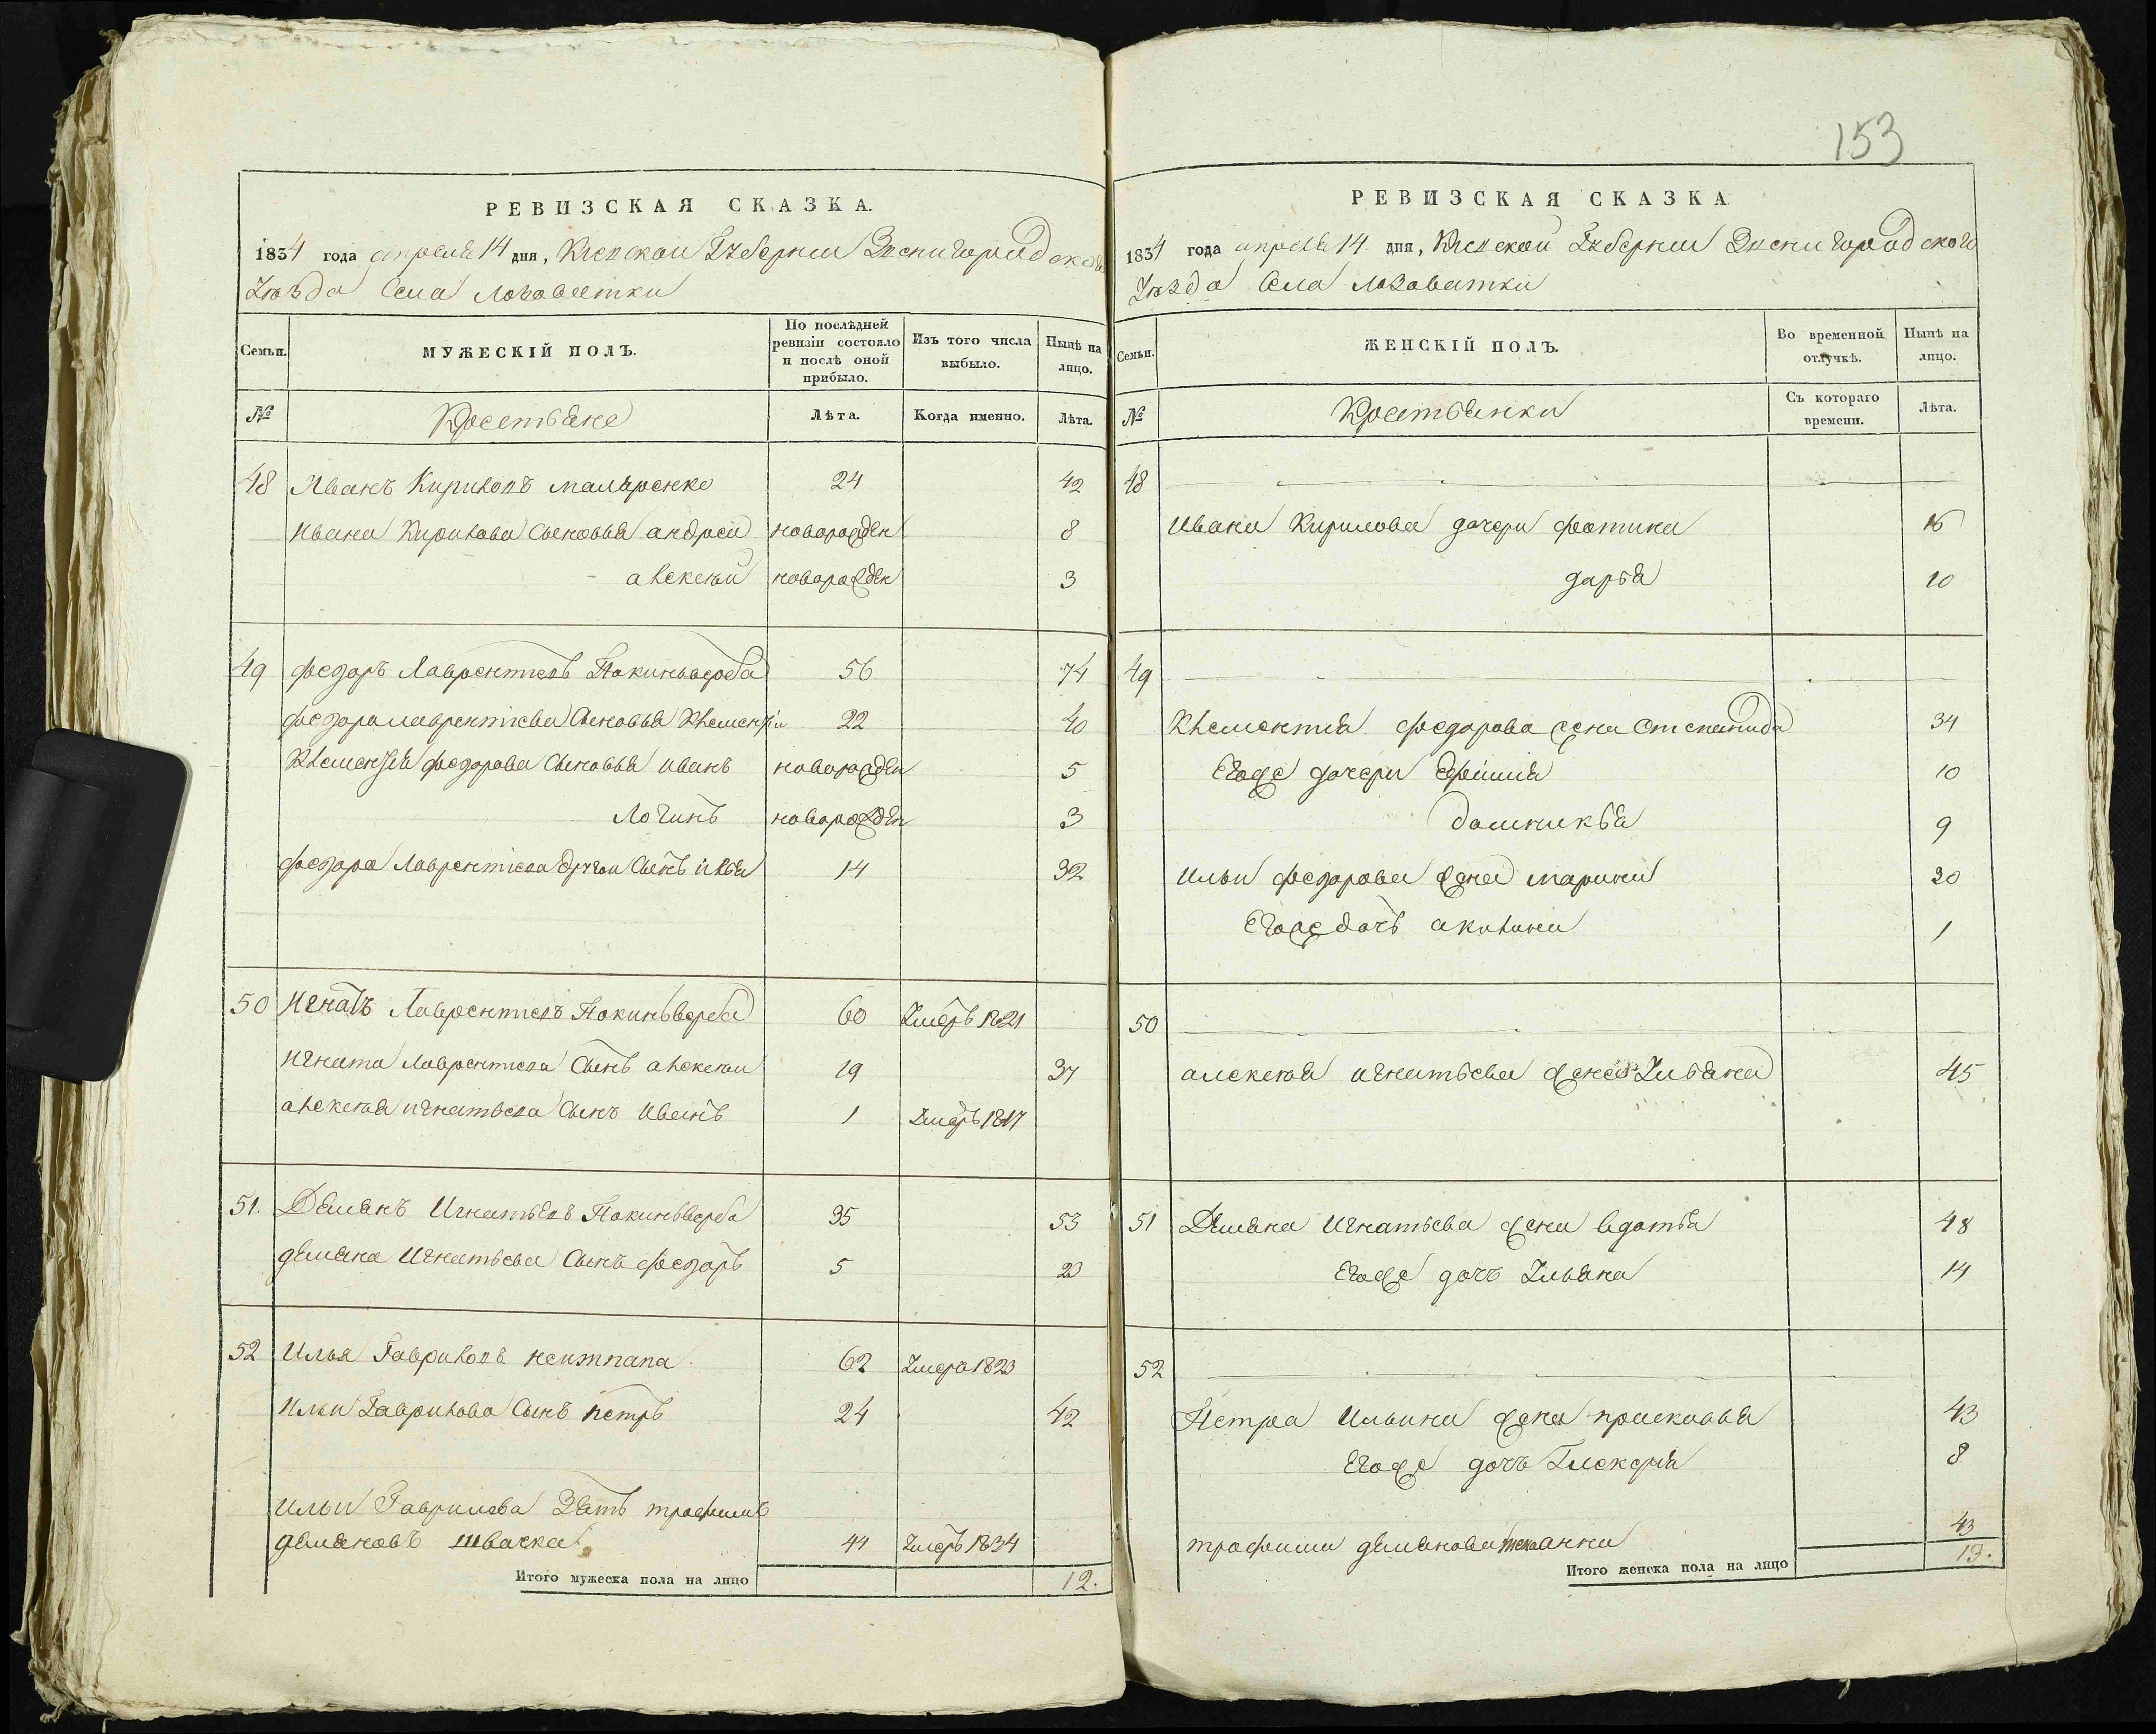 153
РЕВИЗСКАЯ СКАЗКА.
1834 года апреля 14 дня, Киевской Губернии Звенигородского
Уезда Села Лозоватки
Семьи.
МУЖЕСКІЙ ПОЛЪ.
По послѣдней ревизіи состояло и послѣ оной прибыло.
Изъ того числа выбыло.
Нынѣ на лицо.
№
Крестьяне
Лѣта.
Когда именно.
Лѣта.
48 Иванъ Кириловъ 24 42
Ивана Кирилова Сыновья андрей новорожден 8
алексей новорожден 3
49 федоръ Лаврентиевъ Покиньверба 56 74
федора лаврентиева Сыновья Клементий 22 40
Клементия федорова Сыновья иванъ новорожден 5
Логинъ новорожден 3
федора Лаврентиева другой Сынъ илья 14 32
50 Игнатъ Лаврентиевъ Покиньверба 60 Умеръ 1821
Игната Лаврентиева Сынъ алексей 19 37
алексея игнатьева Сынъ Иванъ 1 Умеръ 1817
51. Демянъ Игнатьевъ Покиньверба 35 53
демяна Игнатьева Сынъ федоръ 5 23
52 Илья Гавриловъ неитпапа 62 Умеръ 1823
Ильи Гаврилова Сынъ петръ 24 42
Ильи Гаврилова Зять трофимъ
демяновъ швачка 44 Умеръ 1834
Итого мужеска пола на лицо 12.
РЕВИЗСКАЯ СКАЗКА
1834 года апреля 14. дня, Киевской Губернии Звенигородского
Уезда Села Лозоватки
Семьи.
ЖЕНСКІЙ ПОЛЪ.
Во временной отлучкѣ.
Нынѣ на лицо.
№
Крестьянки
Съ котораго времени.
Лѣта.
48
Ивана Кирилова дочери фотина 16
дарья 10
49
Клементия федорова жена Степанида 34
Егоже дочери Ефимия 10
домникья 9
Ильи федорова жена марина 30
Егоже дочъ акилина 1
50
алексея игнатьева жена Ульяна 45
51 Демяна Игнатьева жена вдотья 48
Егоже дочъ Ульяна 14
52
Петра Ильина жена прасковья 43
Егоже дочъ Гликерия 8
трофима демянова жена анна 43
Итого женска пола на лицо 13.